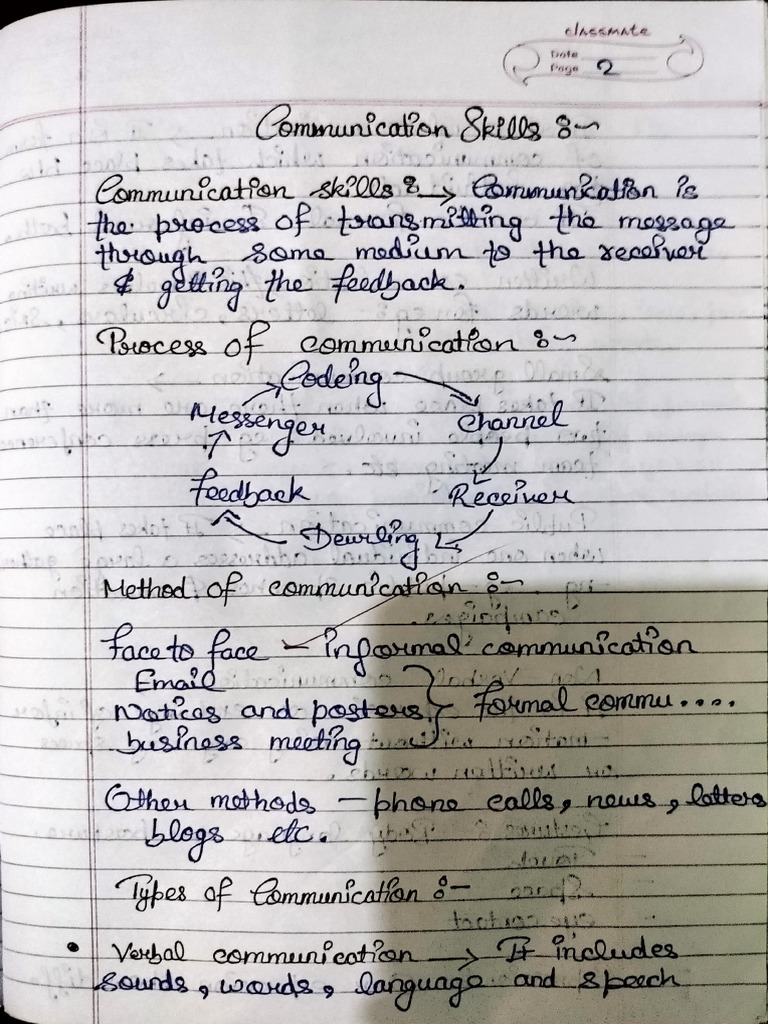 classmate
Date
Page 2
Communication Skills :-
Communication skills : → Communication is
the process of transmitting the message
through some medium to the receiver
& getting the feedback.
Process of communication :-
Codeing
Messenger Channel
Feedback Receiver
Method of communication :-
Face to face - informal communication
Email
Notices and posters } formal commu....
business meeting
Other methods - phone calls, news, letters
blogs etc.
Types of Communication :-
• Verbal communication → It includes
sounds, words, language and speech